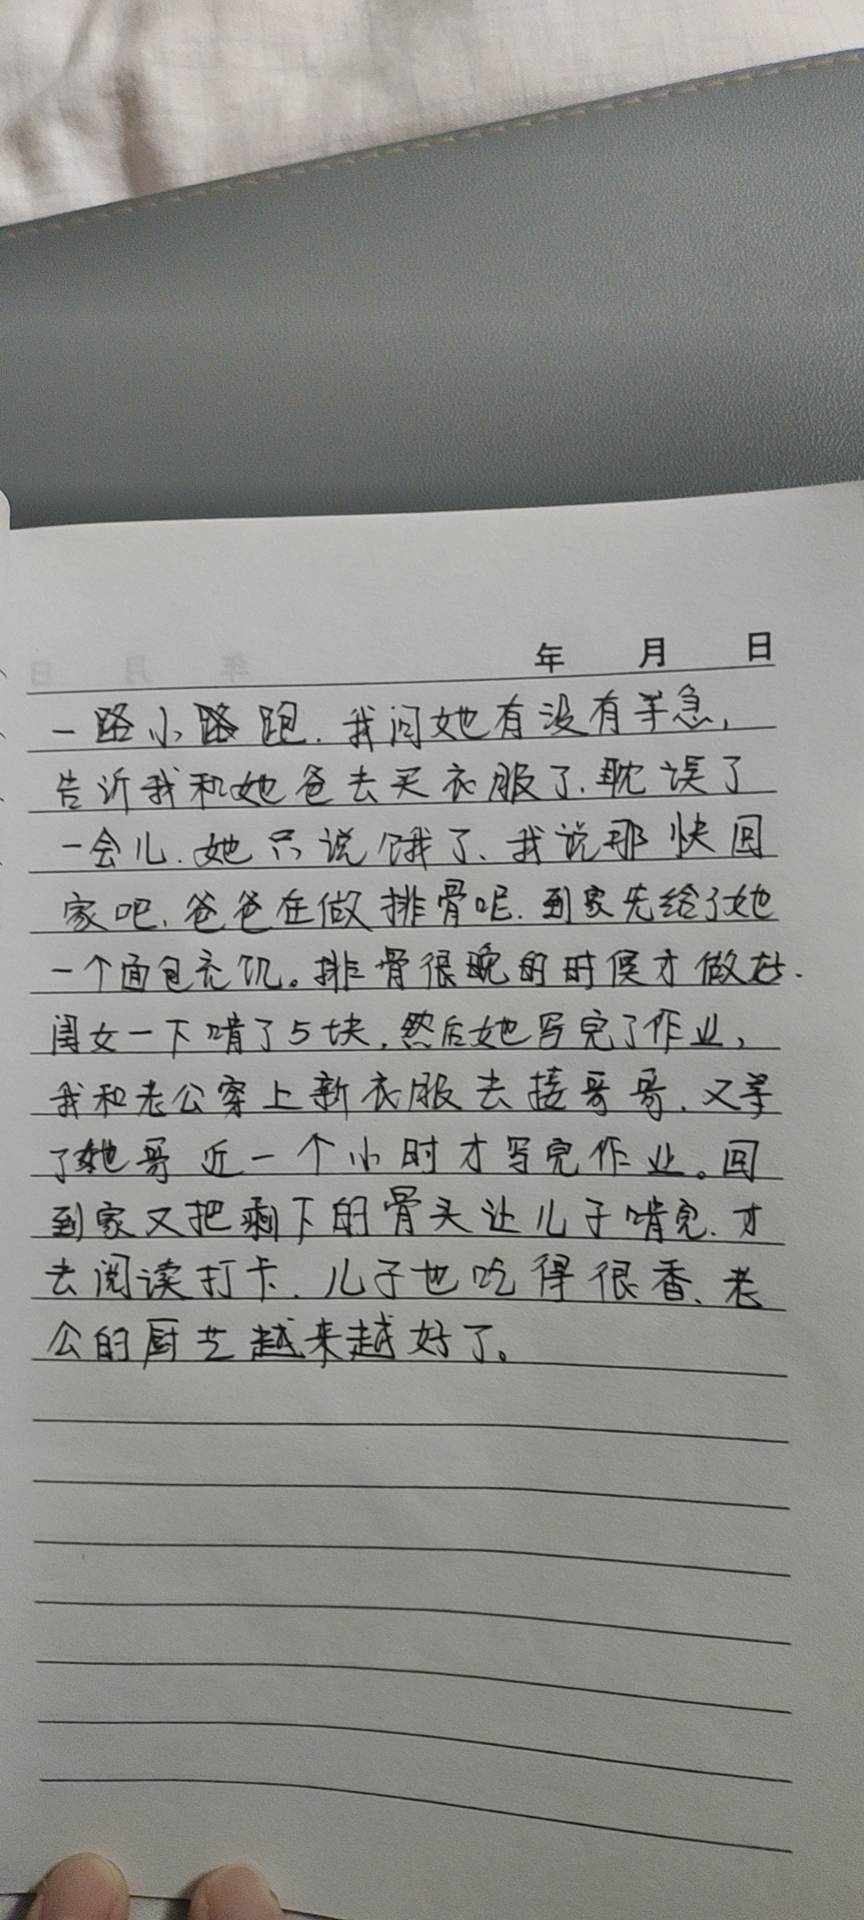 年 月 日
一路小路跑.我问她有没有着急,
告诉我和她爸去买衣服了.耽误了
一会儿.她只说饿了、我说那快回
家吧.爸爸在做排骨呢.到家先给了她
一个面包充饥。排骨很晚的时候才做好.
闺女一下啃了5块.然后她写完了作业,
我和老公穿上新衣服去接哥哥.又等
了她哥近一个小时才写完作业。回
到家又把剩下的骨头让儿子啃完.才
去阅读打卡.儿子也吃得很香、老
公的厨艺越来越好了。